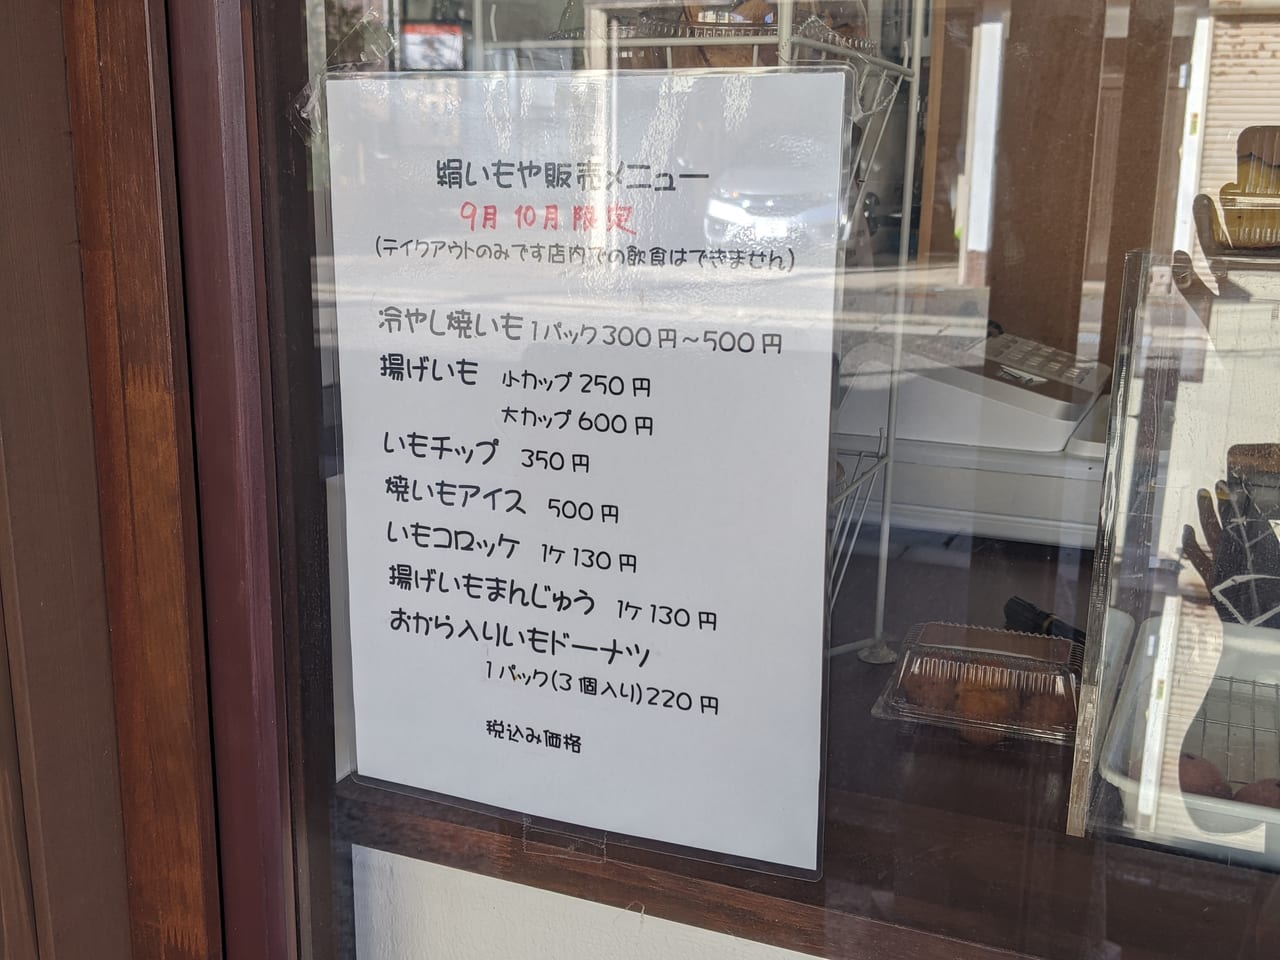 絹いもや販売メニュー
9月10月限定
(テイクアウトのみです店内での飲食はできません)
冷やし焼いも1パック300円～500円
揚げいも 小カップ250円
大カップ600円
いもチップ 350円
焼いもアイス 500円
いもコロッケ 1ケ130円
揚げいもまんじゅう 1ケ130円
おから入りいもドーナツ
1パック(3個入り)220円
税込み価格